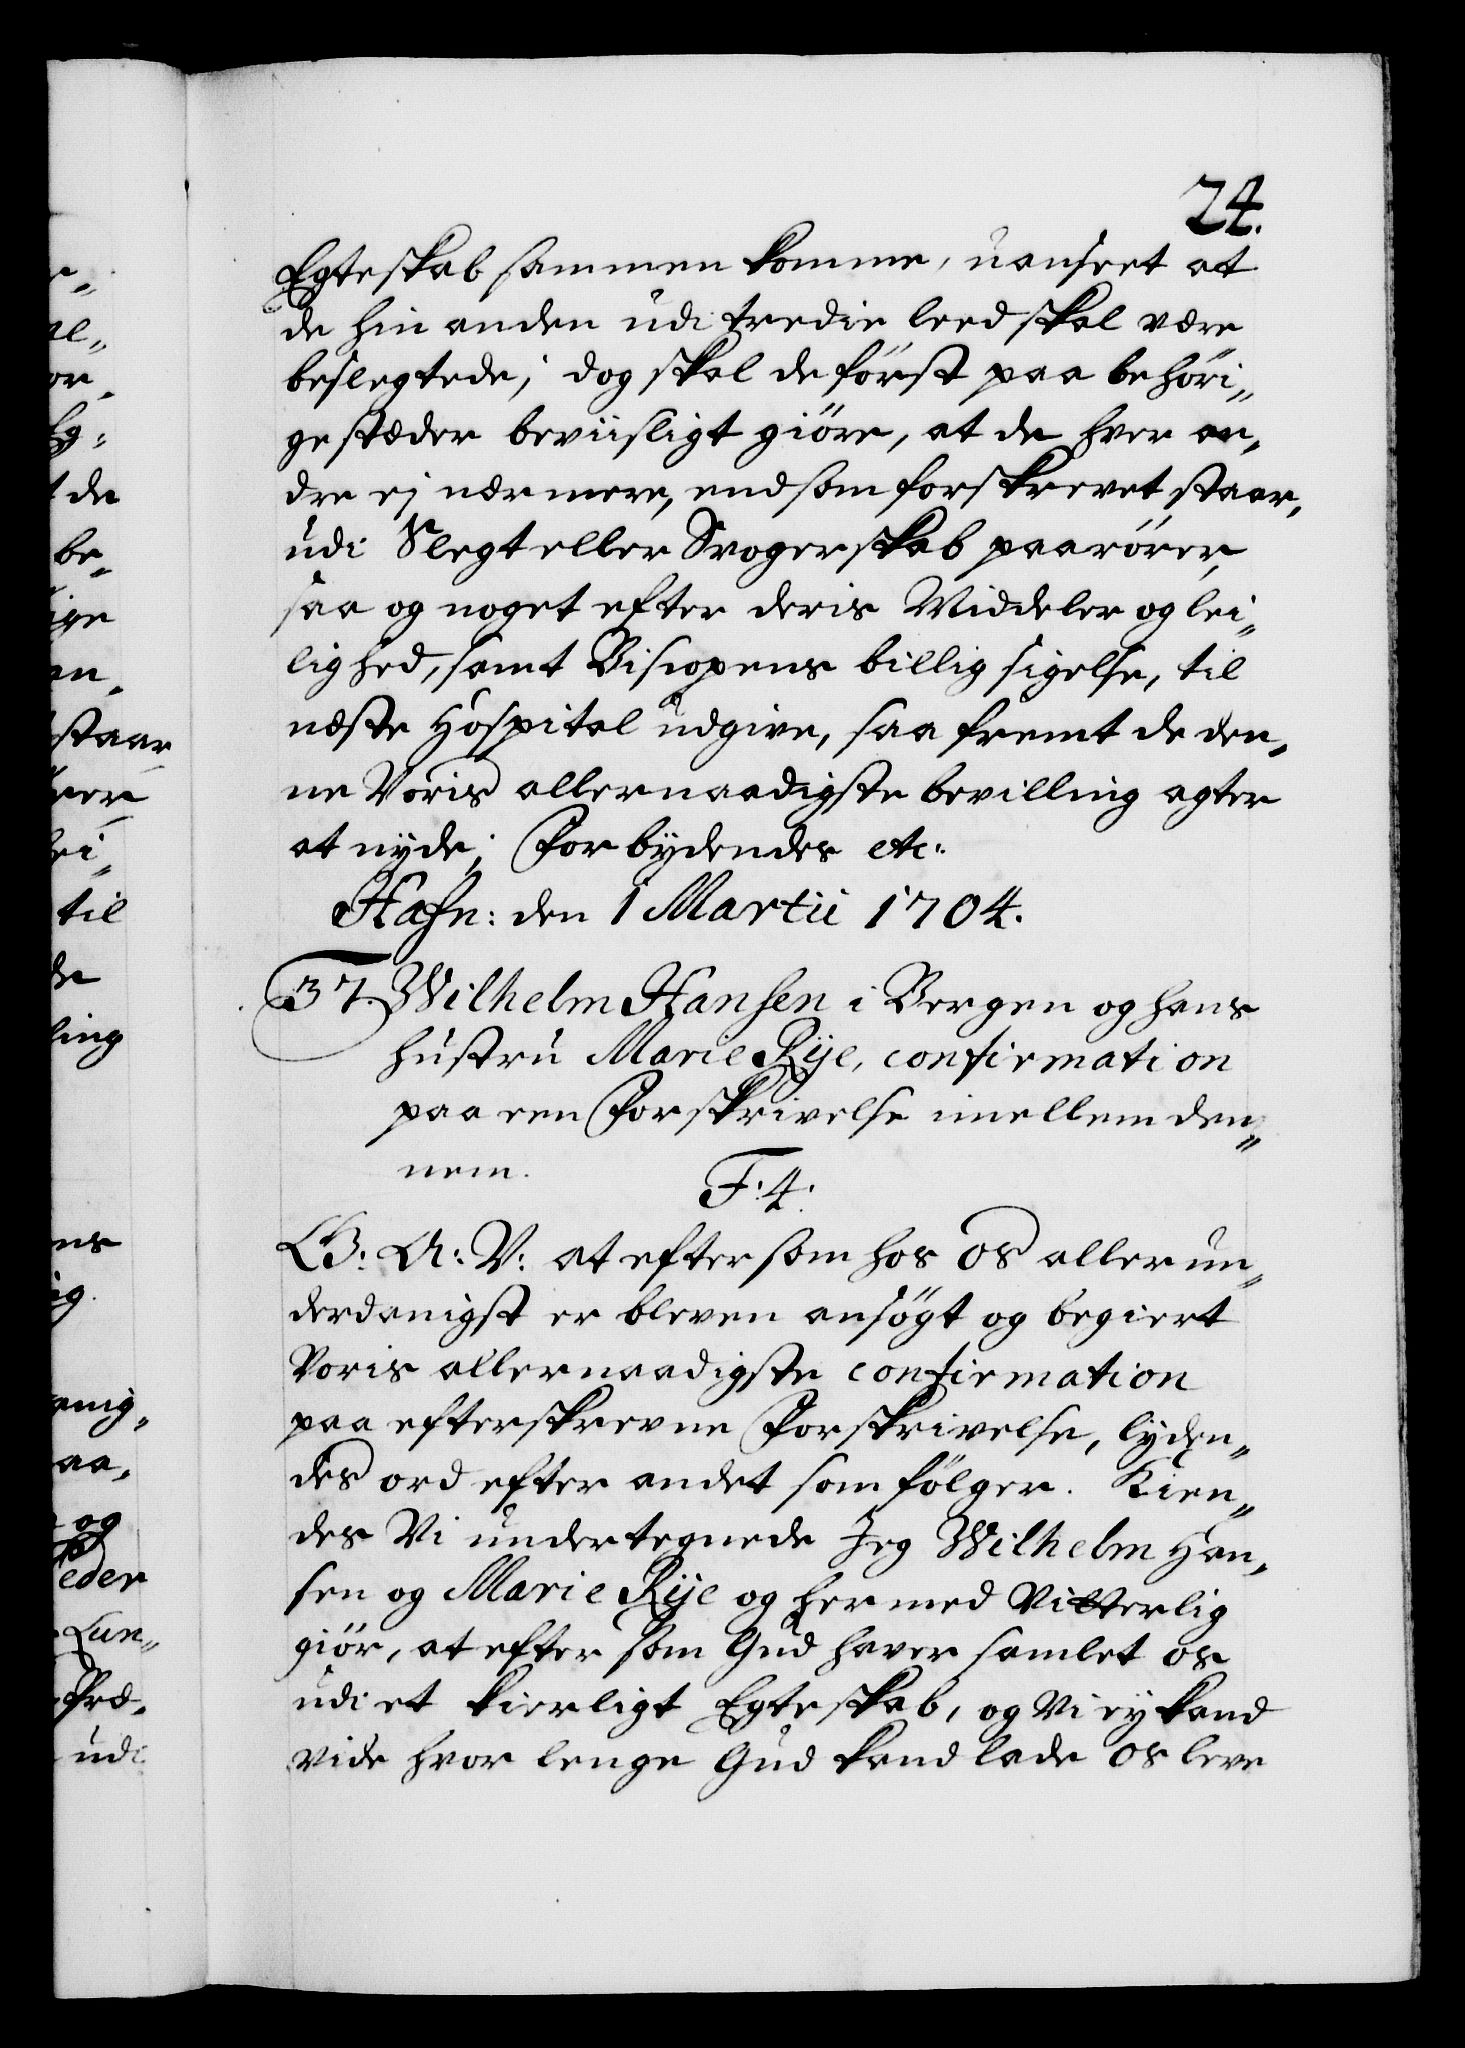 24.
Egteskab sammen komme, uanseet at
de hin anden udi tredie leed skal være
beslegtede; dog skal de först paa behöri„
ge stæder beviisligt giöre, at de hver an„
dre ej nærmere, end som forskrevet staar,
udi Slegt eller Svogerskab paarörer,
saa og noget efter deris Middeler og lei„
lighed, samt Biscopens billig sigelse, til
næste Hospital udgive, saa fremt de den„
ne Voris allernaadigste bevilling agter
at nyde; Forbydendes etc:
Hafn: den 1 Martii 1704.
37 Wilhelm Hansen i Bergen og hans
hustru Marie Rÿe, confirmation
paa een Forskrivelse imellem den„
nem.
F: 4:
G: A: V: at efter som hos os allerun„
derdanigst er bleven ansögt og begiert
Voris allernaadigste confirmation
paa efterskrevne Forskrivelse, lyden„
des ord efter andet som fölger. Kien„
des Vi undertegnede Jeg Wilhelm Han„
sen og Marie Rÿe og hermed Vitterlig
giör, at efter som Gud haver samlet os
udi et kierligt Egteskab, og Vi ey kand
vide hvor lenge Gud kand lade os leve
de
be„
staar
til
ling
og
eder
Lun„
udi